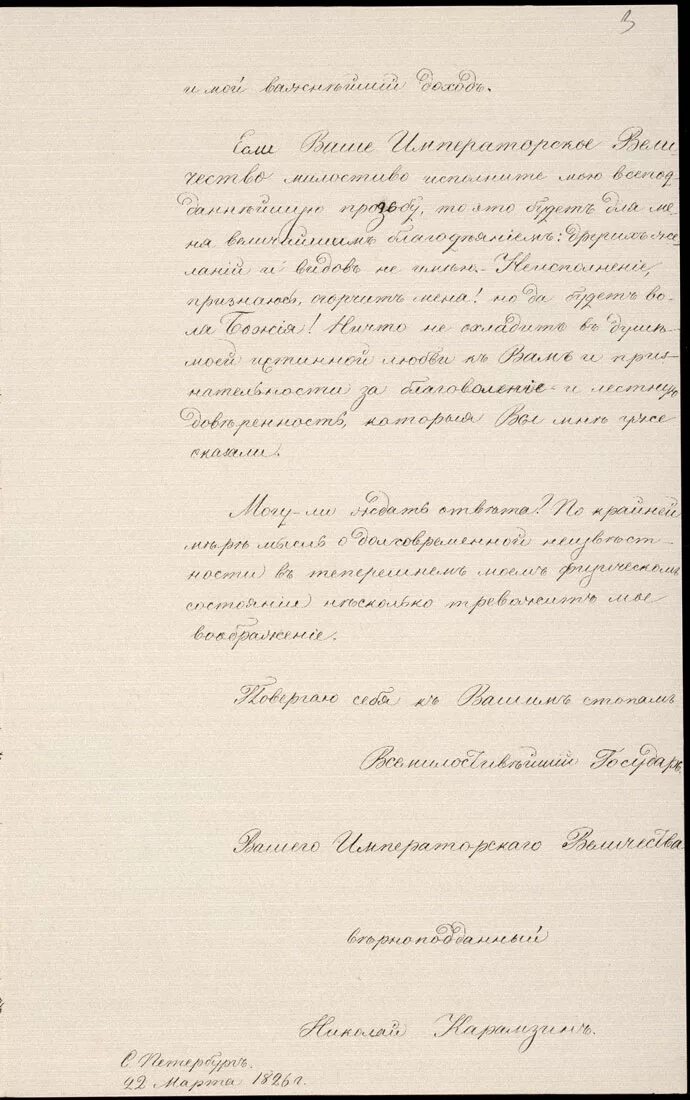 3
и мой важнѣйшій доходъ.
Если Ваше Императорское Вели-
чество милостиво исполните мою всепод-
даннѣйшую прозьбу, то это будетъ для ме-
ня величайшимъ благодѣяніемъ: другихъ же-
ланій и видовъ не имѣю. Неисполненіе,
признаюсь, огорчитъ меня! но да будетъ во-
ля Божія! Ничто не охладитъ въ душѣ
моей истинной любви къ Вамъ и приз-
нательности за благоволеніе и лестную
довѣренность, которыя Вы мнѣ уже
оказали.
Могу-ли ждать отвѣта? По крайней
мѣрѣ мысль о долговременной неизвѣст-
ности въ теперешнемъ моемъ физическомъ
состояніи нѣсколько тревожитъ мое
воображеніе.
Повергаю себя къ Вашимъ стопамъ
Всемилостивѣйшій Государь
Вашего Императорскаго Величества
вѣрноподданный
Николай Карамзинъ.
С Петербургъ.
22 Марта 1826 г.